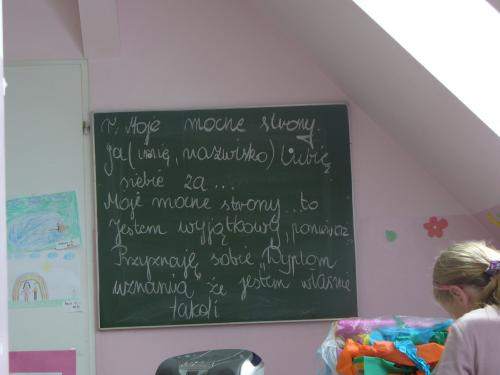 T: Moje mocne strony.
Ja (imię, nazwisko) Lubię
siebie za...
Moje mocne strony...to
Jestem wyjątkowy, ponieważ
Przyznaję sobie Dyplom
uznania że jestem właśnie
taka/i